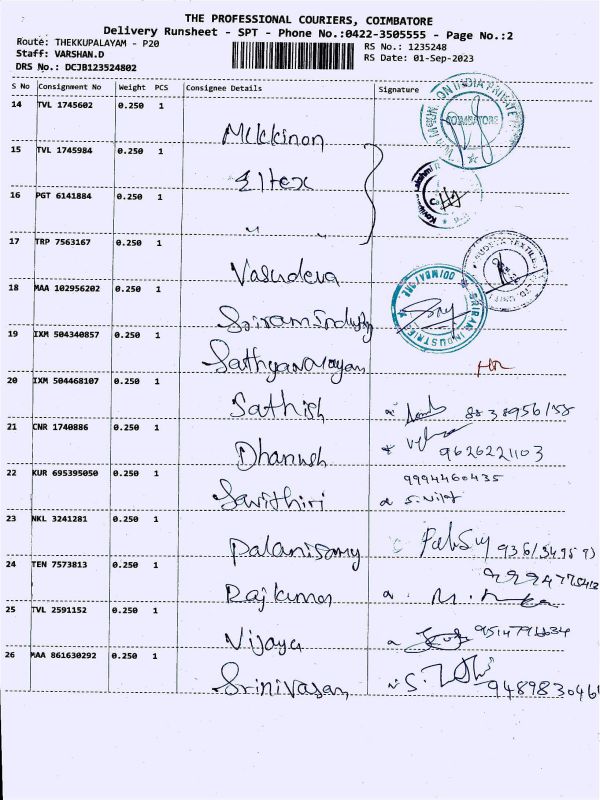 THE PROFESSIONAL COURIERS, COIMBATORE
Delivery Runsheet - SPT - Phone No.:0422-3505555 - Page No.:2
Route: THEKKUPALAYAM - P20
RS No.: 1235248
Staff: VARSHAN.D
RS Date: 01-Sep-2023
DRS No.: DCJB123524802
S No Consignment No Weight PCS Consignee Details Signature
14 TVL 1745602 0.250 1
COIMBATORE
15 TVL 1745984 0.250 1 Eltex
16 PGT 6141884 0.250 1 " "
17 TRP 7563167 0.250 1 Vasudeva
18 MAA 102956202 0.250 1 SRIRAM INDUSTRIES COIMBATORE
19 IXM 504340857 0.250 1 Sathyanarayan
20 IXM 504468107 0.250 1 Sathish
21 CNR 1740886 0.250 1 Dhanush 9626221103
22 KUR 695395050 0.250 1 Savithiri 9994460435
23 NKL 3241281 0.250 1 Palanisamy
24 TEN 7573813 0.250 1 Rajkumar
25 TVL 2591152 0.250 1 Vijaya
26 MAA 861630292 0.250 1 Srinivasan